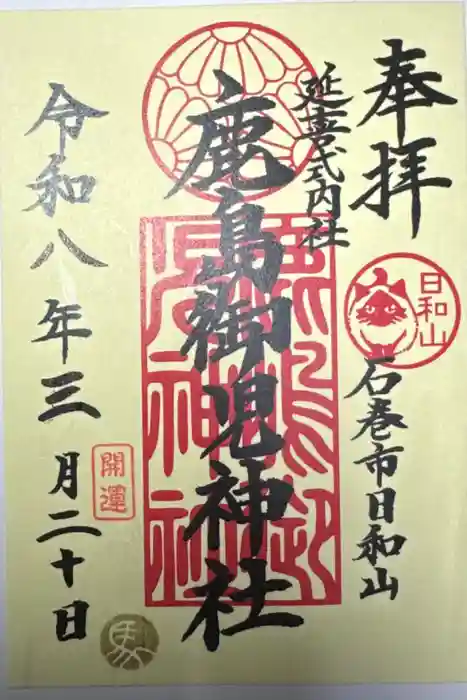 奉拝
延喜式内社
日和山
石巻市日和山
鹿島御児神社
鹿島御児神社
令和八年三月二十日
開運